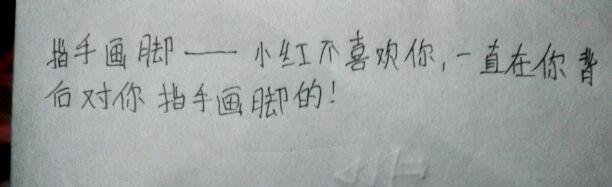 指手画脚——小红不喜欢你,一直在你背
后对你指手画脚的!